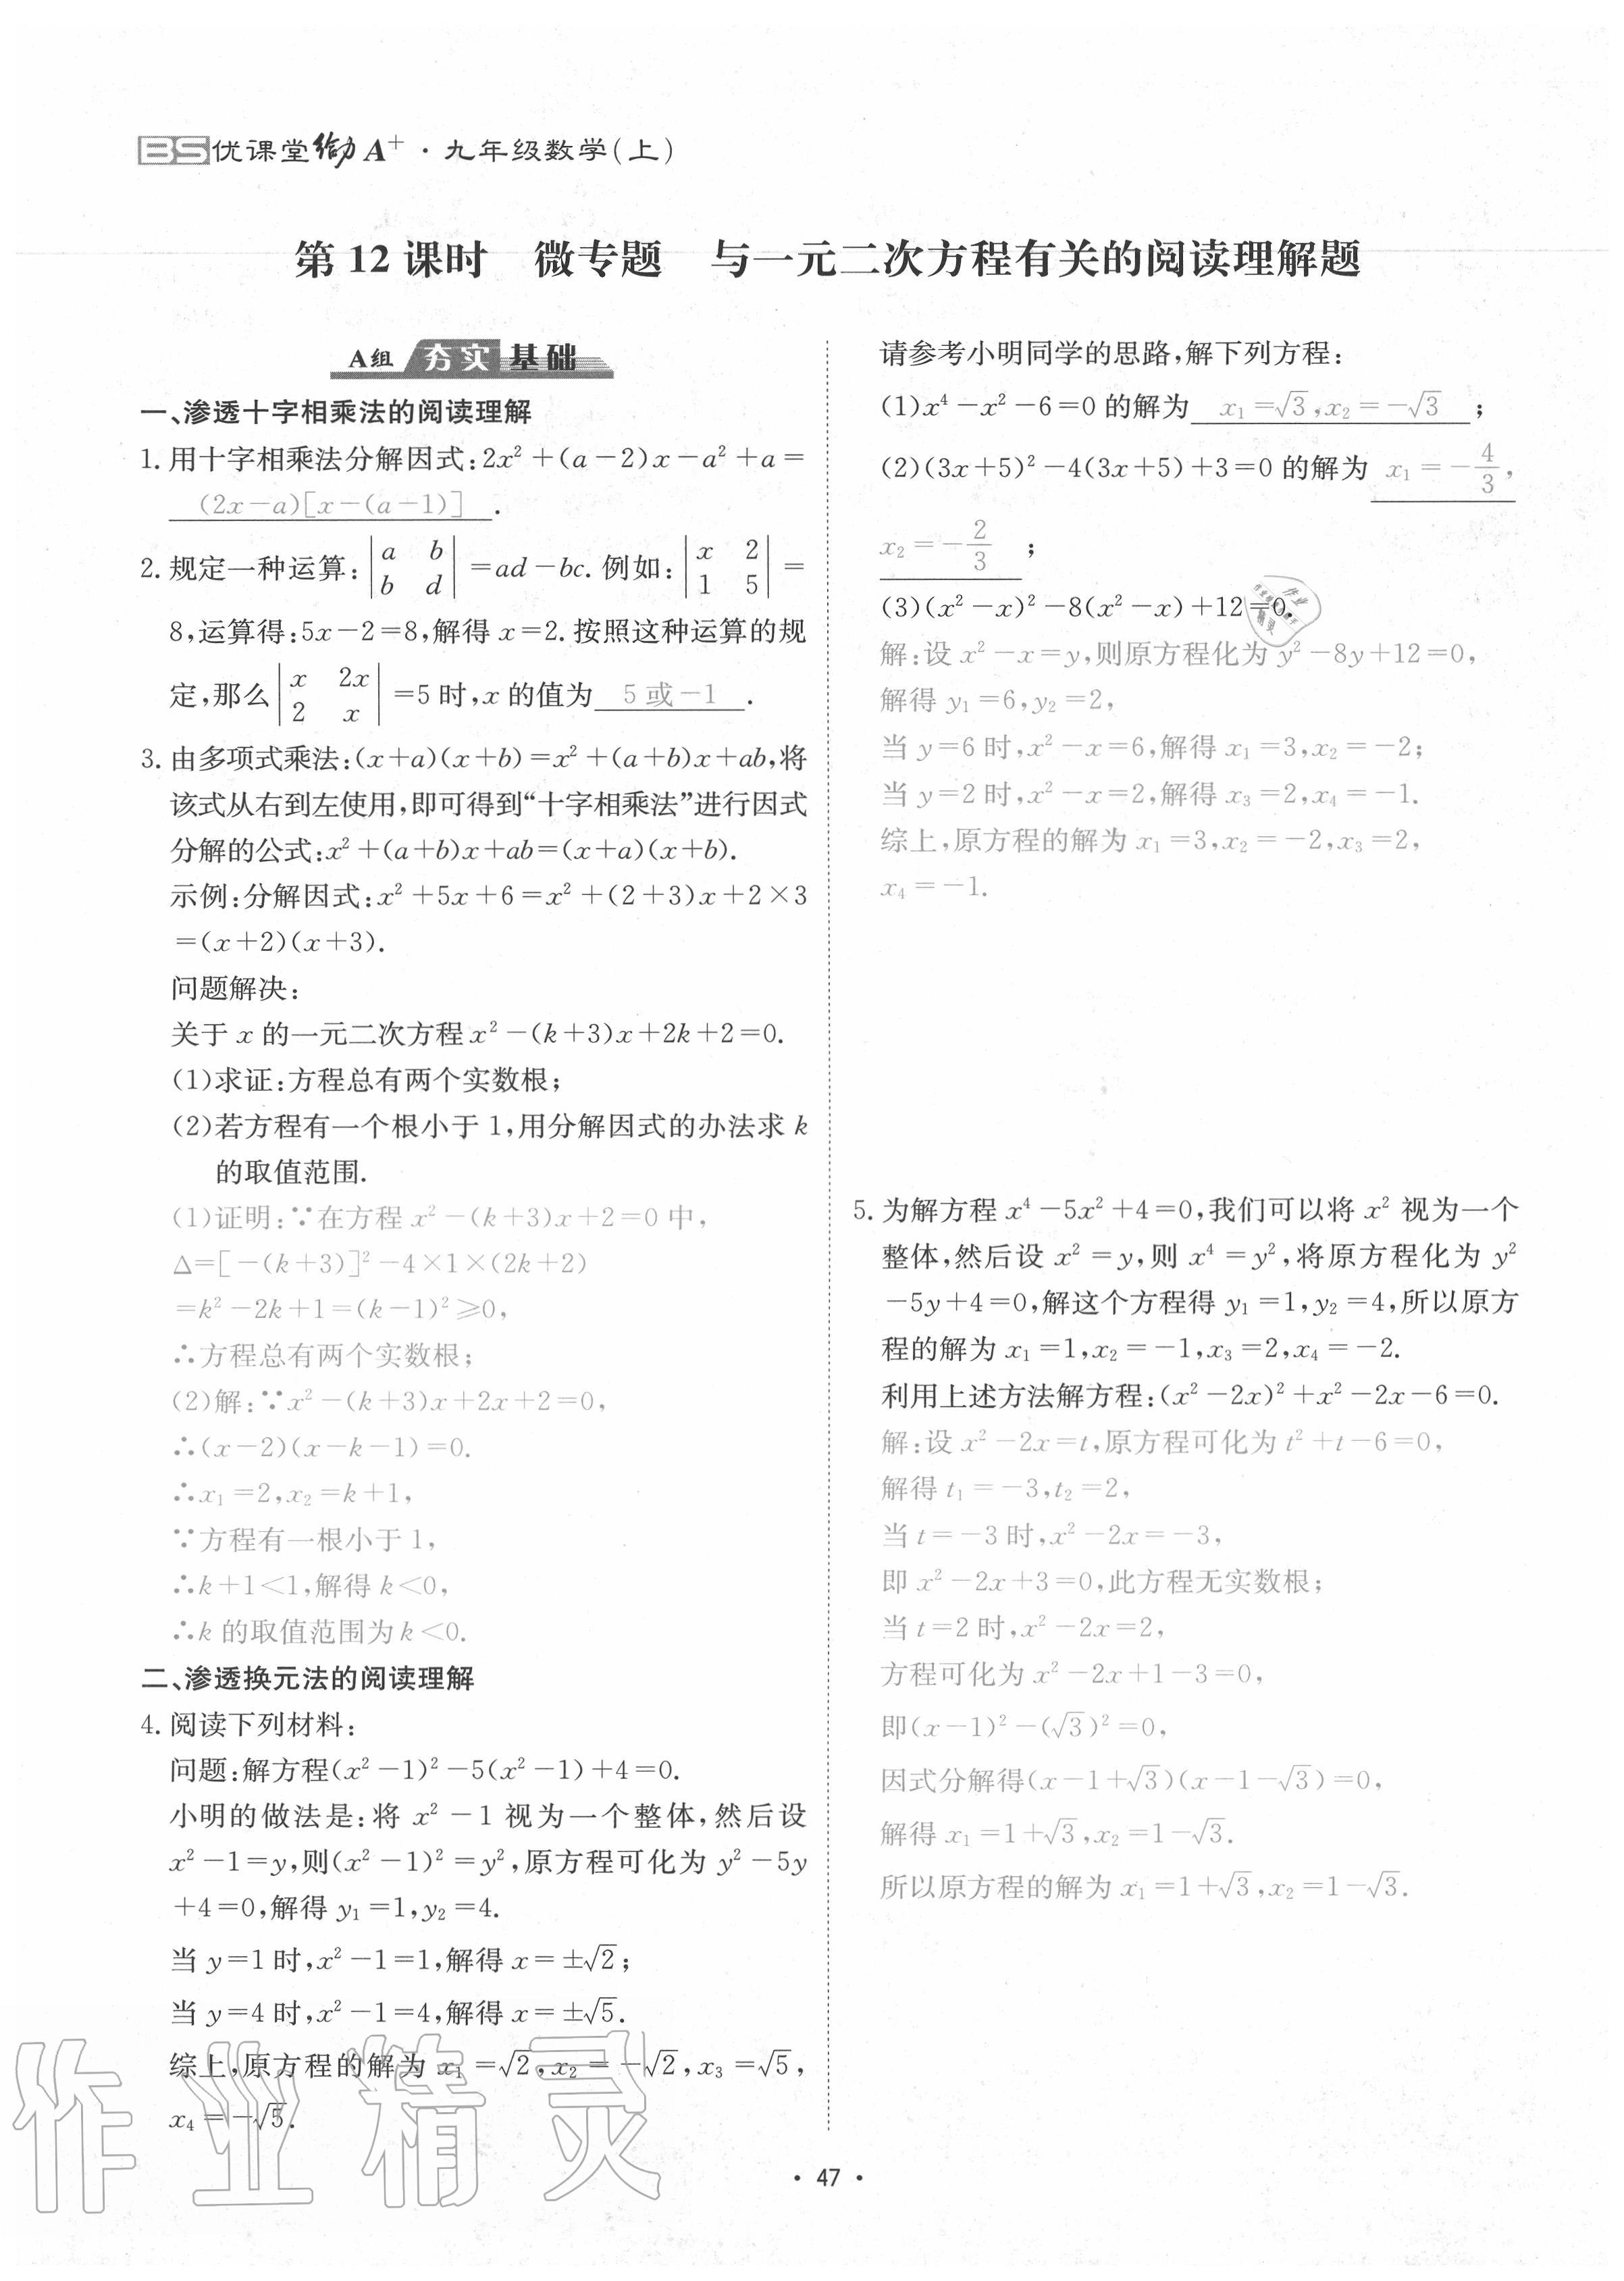 BS优课堂给力A⁺·九年级数学(上)
第12课时 微专题 与一元二次方程有关的阅读理解题
A组 夯实基础
一、渗透十字相乘法的阅读理解
1. 用十字相乘法分解因式:2x²+(a-2)x-a²+a=
(2x-a)[x-(a-1)].
2. 规定一种运算:|a b; b d|=ad-bc. 例如:|x 2; 1 5|=
8,运算得:5x-2=8,解得 x=2. 按照这种运算的规
定,那么|x 2x; 2 x|=5 时,x 的值为 5 或-1.
3. 由多项式乘法:(x+a)(x+b)=x²+(a+b)x+ab,将
该式从右到左使用,即可得到“十字相乘法”进行因式
分解的公式:x²+(a+b)x+ab=(x+a)(x+b).
示例:分解因式:x²+5x+6=x²+(2+3)x+2×3
=(x+2)(x+3).
问题解决:
关于 x 的一元二次方程 x²-(k+3)x+2k+2=0.
(1)求证:方程总有两个实数根;
(2)若方程有一个根小于 1,用分解因式的办法求 k
的取值范围.
(1)证明:∵在方程 x²-(k+3)x+2=0 中,
Δ=[-(k+3)]²-4×1×(2k+2)
=k²-2k+1=(k-1)²≥0,
∴方程总有两个实数根;
(2)解:∵x²-(k+3)x+2x+2=0,
∴(x-2)(x-k-1)=0.
∴x₁=2,x₂=k+1,
∵方程有一根小于 1,
∴k+1<1,解得 k<0,
∴k 的取值范围为 k<0.
二、渗透换元法的阅读理解
4. 阅读下列材料:
问题:解方程(x²-1)²-5(x²-1)+4=0.
小明的做法是:将 x²-1 视为一个整体,然后设
x²-1=y,则(x²-1)²=y²,原方程可化为 y²-5y
+4=0,解得 y₁=1,y₂=4.
当 y=1 时,x²-1=1,解得 x=±√2;
当 y=4 时,x²-1=4,解得 x=±√5.
综上,原方程的解为 x₁=√2,x₂=-√2,x₃=√5,
x₄=-√5.
请参考小明同学的思路,解下列方程:
(1)x⁴-x²-6=0 的解为 x₁=√3,x₂=-√3;
(2)(3x+5)²-4(3x+5)+3=0 的解为 x₁=-4/3,
x₂=-2/3;
(3)(x²-x)²-8(x²-x)+12=0.
解:设 x²-x=y,则原方程化为 y²-8y+12=0,
解得 y₁=6,y₂=2,
当 y=6 时,x²-x=6,解得 x₁=3,x₂=-2;
当 y=2 时,x²-x=2,解得 x₃=2,x₄=-1.
综上,原方程的解为 x₁=3,x₂=-2,x₃=2,
x₄=-1.
5. 为解方程 x⁴-5x²+4=0,我们可以将 x² 视为一个
整体,然后设 x²=y,则 x⁴=y²,将原方程化为 y²
-5y+4=0,解这个方程得 y₁=1,y₂=4,所以原方
程的解为 x₁=1,x₂=-1,x₃=2,x₄=-2.
利用上述方法解方程:(x²-2x)²+x²-2x-6=0.
解:设 x²-2x=t,原方程可化为 t²+t-6=0,
解得 t₁=-3,t₂=2,
当 t=-3 时,x²-2x=-3,
即 x²-2x+3=0,此方程无实数根;
当 t=2 时,x²-2x=2,
方程可化为 x²-2x+1-3=0,
即(x-1)²-(√3)²=0,
因式分解得(x-1+√3)(x-1-√3)=0,
解得 x₁=1+√3,x₂=1-√3.
所以原方程的解为 x₁=1+√3,x₂=1-√3.
作业精灵
·47·